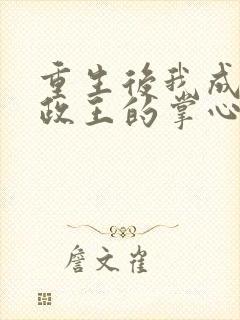 重生後我成
政王的掌心
詹文雀